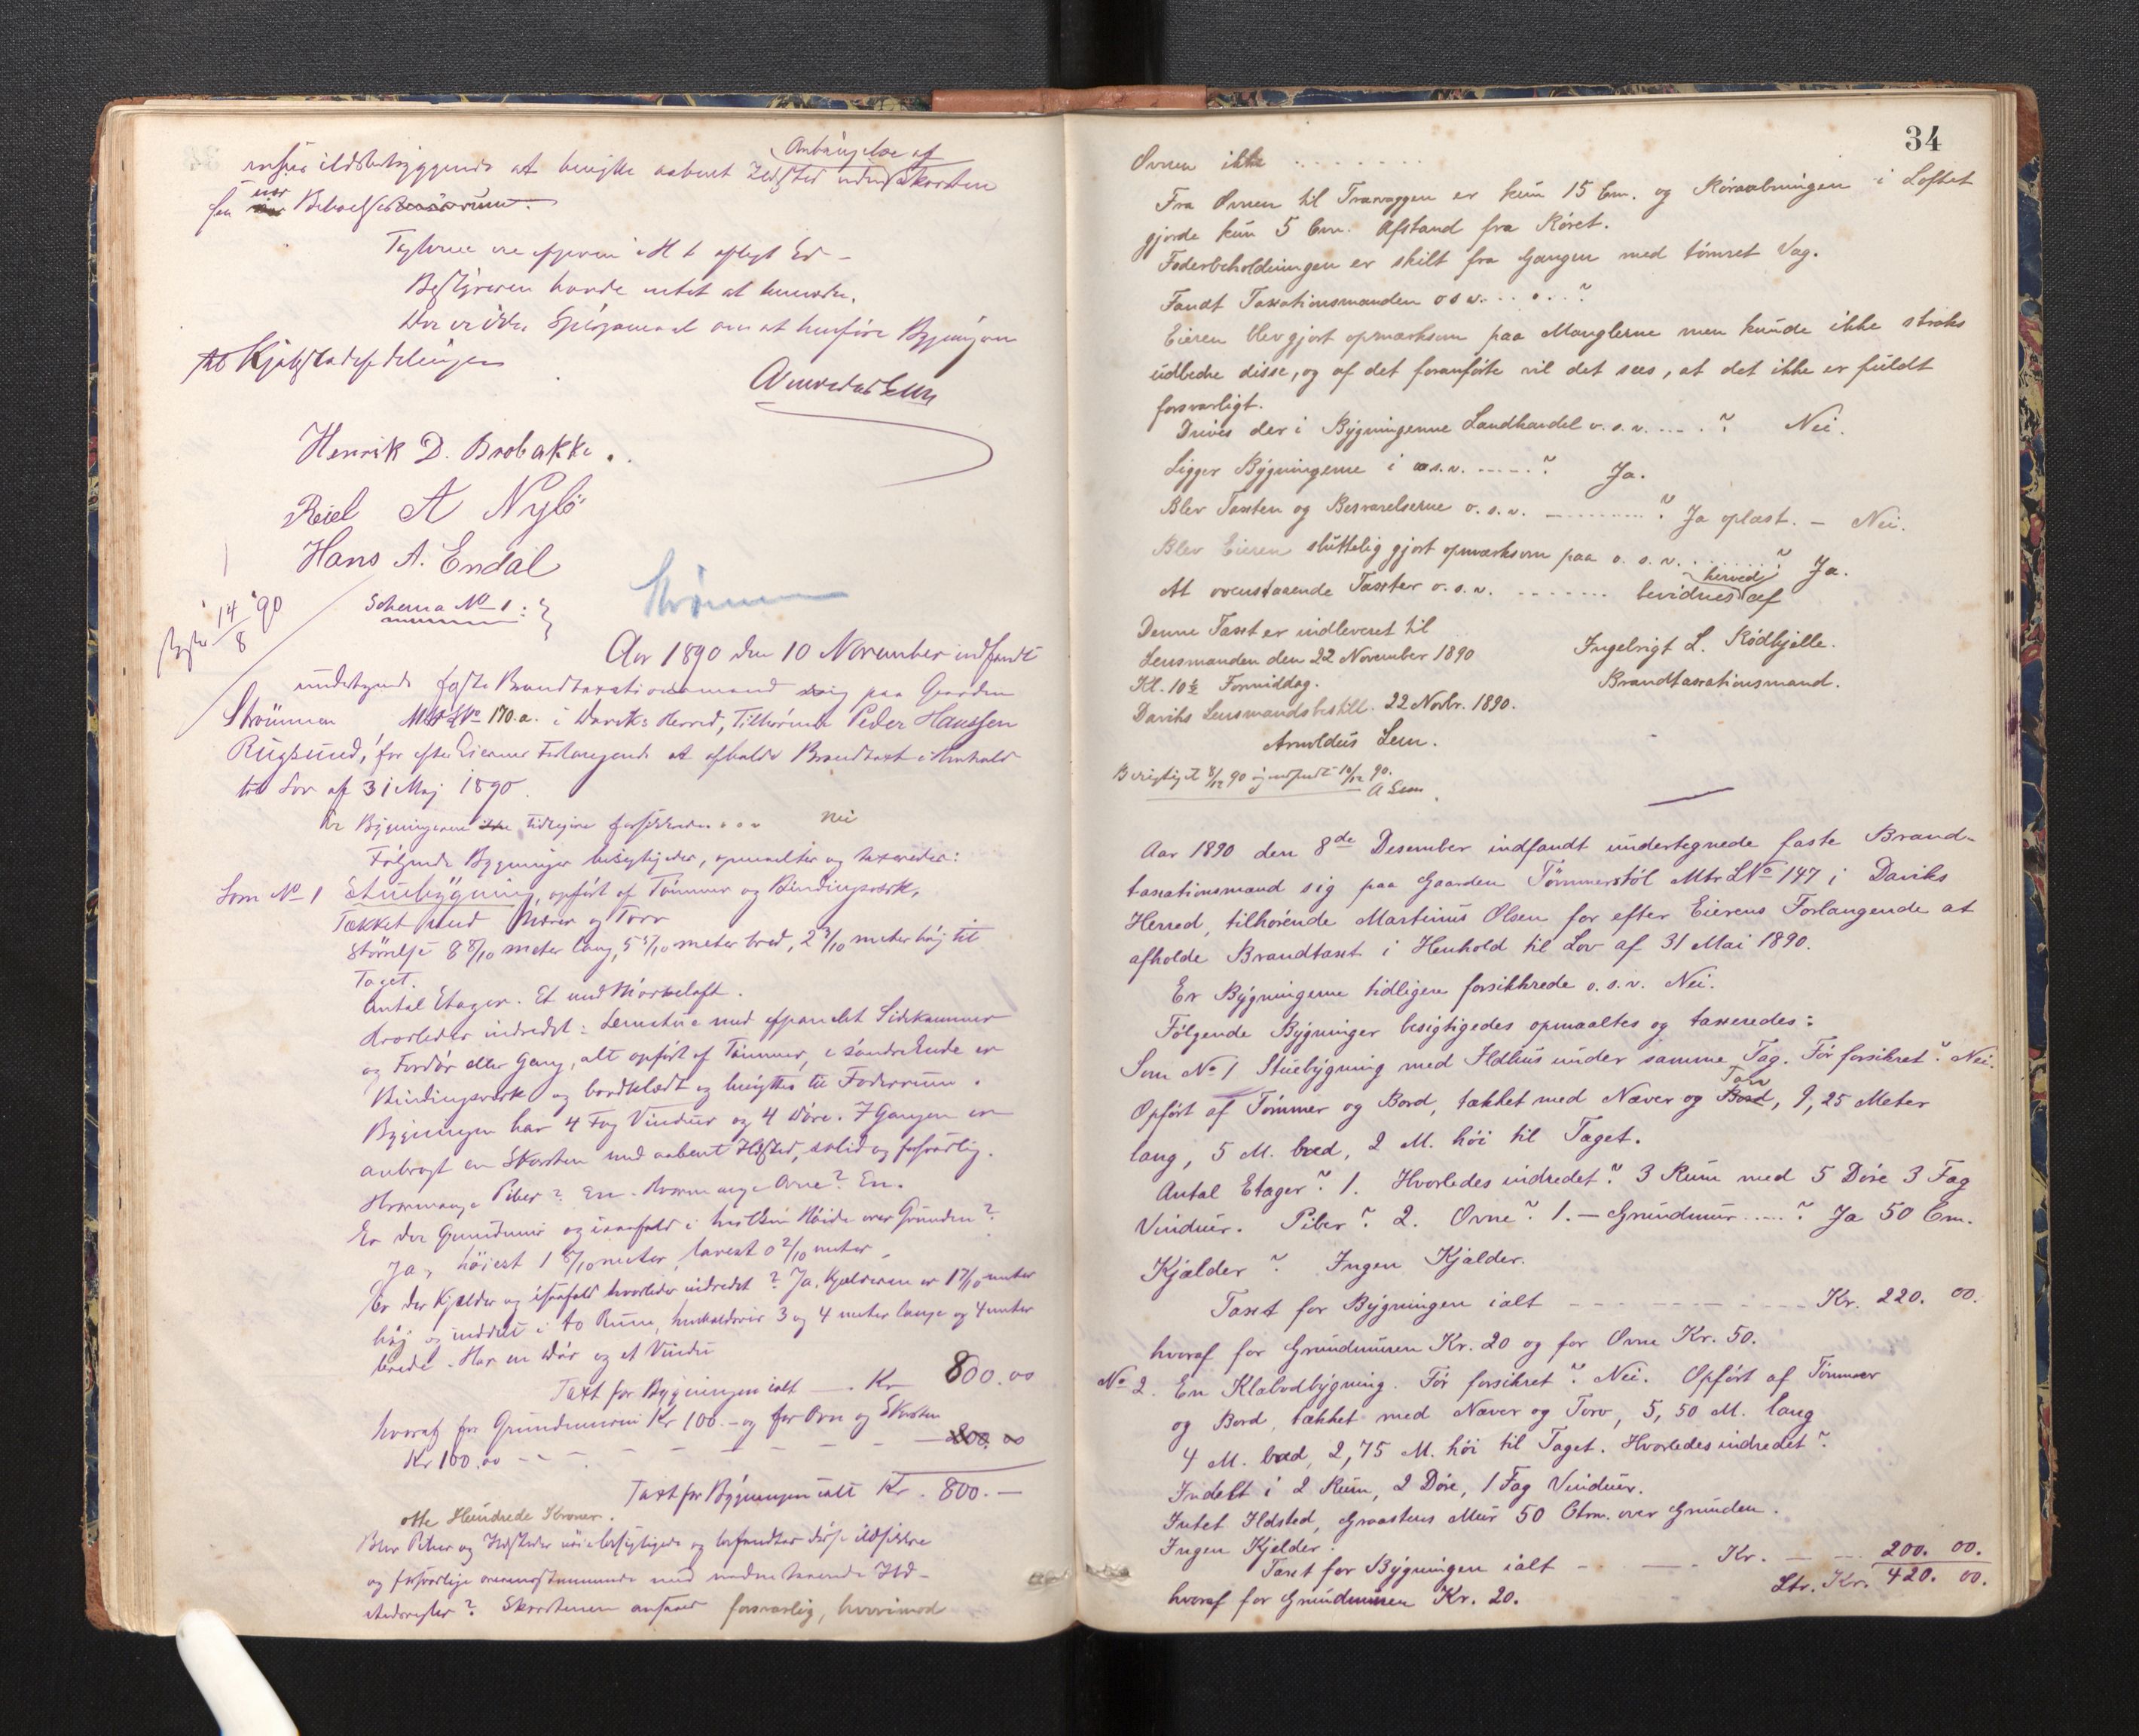 ildsbetryggende at benytte aabent Ildsted uden Anbringelse af Skorsten
Taxterne ere afgivne i H. t. aflagt Ed –
Bestyreren havde intet at bemerke.
Der er ikke Spørgsmaal om at henføre Bygningen
til Kjøbstadafdelingen
Arnoldus Lem
Henrik D. Brobakke.
Reiel A Nylö
Hans A. Endal
14/8 90
Schema No 1:
Strömmen
Aar 1890 den 10 November indfandt
undertegnede faste Brandtaxationsmand sig paa Gaarden
Strömmen MtrLNo 170.a. i Daviks Herred, Tilhørende Peder Hanssen
Rugsund, for efter Eierens Forlangende at afholde Brandtaxt i Henhold
til Lov af 31 Maj 1890.
Er Bygningerne tidligere forsikrede ... nei
Følgende Bygninger besigtigedes, opmaaltes og taxeredes:
Som No 1 Stuebygning, opført af Tømmer og Bindingsverk,
Tækket med Næver og Torv
Størrelse 8 8/10 meter lang, 5 5/10 meter bred, 2 3/10 meter høj til
Taget.
Antal Etager. Et med Mørkeloft.
Hvorledes indredet: Lemstue med afpanelet Sidekammer
og Fordør eller Gang, alt opført af Tømmer, i søndre Ende er
Bindingsverk og bordklædt og benyttes til Foderrum.
Bygningen har 4 Fag Vinduer og 4 Døre. I Gangen er
anbragt en Skorsten med aabent Ildsted, solid og forsvarlig.
Hvormange Piber? En. Hvormange Ovne? En.
Er der Grundmur og isaafald i hvilken Høide over Grunden?
Ja, høiest 1 8/10 meter, lavest 0 2/10 meter.
Er der Kjælder og isaafald hvorledes indredet? Ja, Kjælderen er 1 7/10 meter
høj og inddelt i to Rum, henholdsvis 3 og 4 meter lange og 4 meter
brede. Har en Dør og et Vindu
Taxt for Bygningen ialt – . Kr 800.00
hvoraf for Grundmuren Kr 100.– og for Ovn og Skorsten
Kr 100.00 – – – – – – – 200.00
Taxt for Bygningen ialt Kr. 800.–
otte Hundrede Kroner.
Blev Piber og Ildsteder nøie besigtigede og befandtes disse ildsikkre
og forsvarlige overensstemmende med nedenstaaende Ild-
stedsregler? Skorstenen ansaaes forsvarlig, hvorimod
34
Ovnen ikke . . . . . . . .
Fra Ovnen til Trævæggen er kun 15 Cm. og Røraabningen i Loftet
gjorde kun 5 Cm. Afstand fra Røret.
Foderbeholdningen er skilt fra Gangen med tømret Væg.
Fandt Taxationsmanden o s v. . . . . . ?
Eieren blev gjort opmærksom paa Manglerne men kunde ikke straks
udbedre disse, og af det foranførte vil det sees, at det ikke er fuldt
forsvarligt.
Drives der i Bygningerne Landhandel o. s. v. . . . . ? Nei.
Ligger Bygningerne i o s. v. . . . . . ? Ja.
Blev Taxten og Besvarelserne o. s. v. . . . . . . ? Ja oplæst. – Nei.
Blev Eieren sluttelig gjort opmærksom paa o. s. v. . . . . . . ? Ja.
At ovenstaaende Taxter o. s. v. . . . . . . . bevidnes herved af
Denne Taxt er indleveret til
Lensmanden den 22 November 1890
Kl. 10½ Formiddag.
Ingebrigt L. Rödhjelle.
Brandtaxationsmand.
Daviks Lensmandsbestill. 22 Novbr. 1890.
Arnoldus Lem.
Berigtiget 8/12 90 og indsendt 10/12 90.
A Lem
Aar 1890 den 8de Desember indfandt undertegnede faste Brand-
taxationsmand sig paa Gaarden Tömmerstöl Mtr LNo 147 i Daviks
Herred, tilhørende Martinus Olsen for efter Eierens Forlangende at
afholde Brandtaxt i Henhold til Lov af 31 Mai 1890.
Er Bygningerne tidligere forsikkrede o. s. v. Nei.
Følgende Bygninger besigtigedes opmaaltes og taxeredes:
Som No 1 Stuebygning med Ildhus under samme Tag. Før forsikret? Nei.
Opført af Tømmer og Bord, tækket med Næver og Bord Torv, 9,25 Meter
lang, 5 M. bred, 2 M. høi til Taget.
Antal Etager? 1. Hvorledes indredet? 3 Rum med 5 Døre 3 Fag
Vinduer. Piber? 2. Ovne? 1. – Grundmur . . . . ? Ja 50 Cm.
Kjælder? Ingen Kjælder.
Taxt for Bygningen ialt – – – – – – – Kr. 220. 00.
hvoraf for Grundmuren Kr. 20 og for Ovne Kr. 50.
No 2. En Klæbodbygning. Før forsikret? Nei. Opført af Tømmer
og Bord, tækket med Næver og Torv, 5,50 M. lang
4 M. bred, 2,75 M. høi til Taget. Hvorledes indredet?
Indelt i 2 Rum, 2 Døre, 1 Fag Vinduer.
Intet Ildsted, Graastens Mur 50 Ctm. over Grunden.
Ingen Kjelder.
Taxt for Bygningen ialt – – – Kr. – – 200. 00.
hvoraf for Grundmuren Kr. 20. Ltr. Kr. 420. 00.